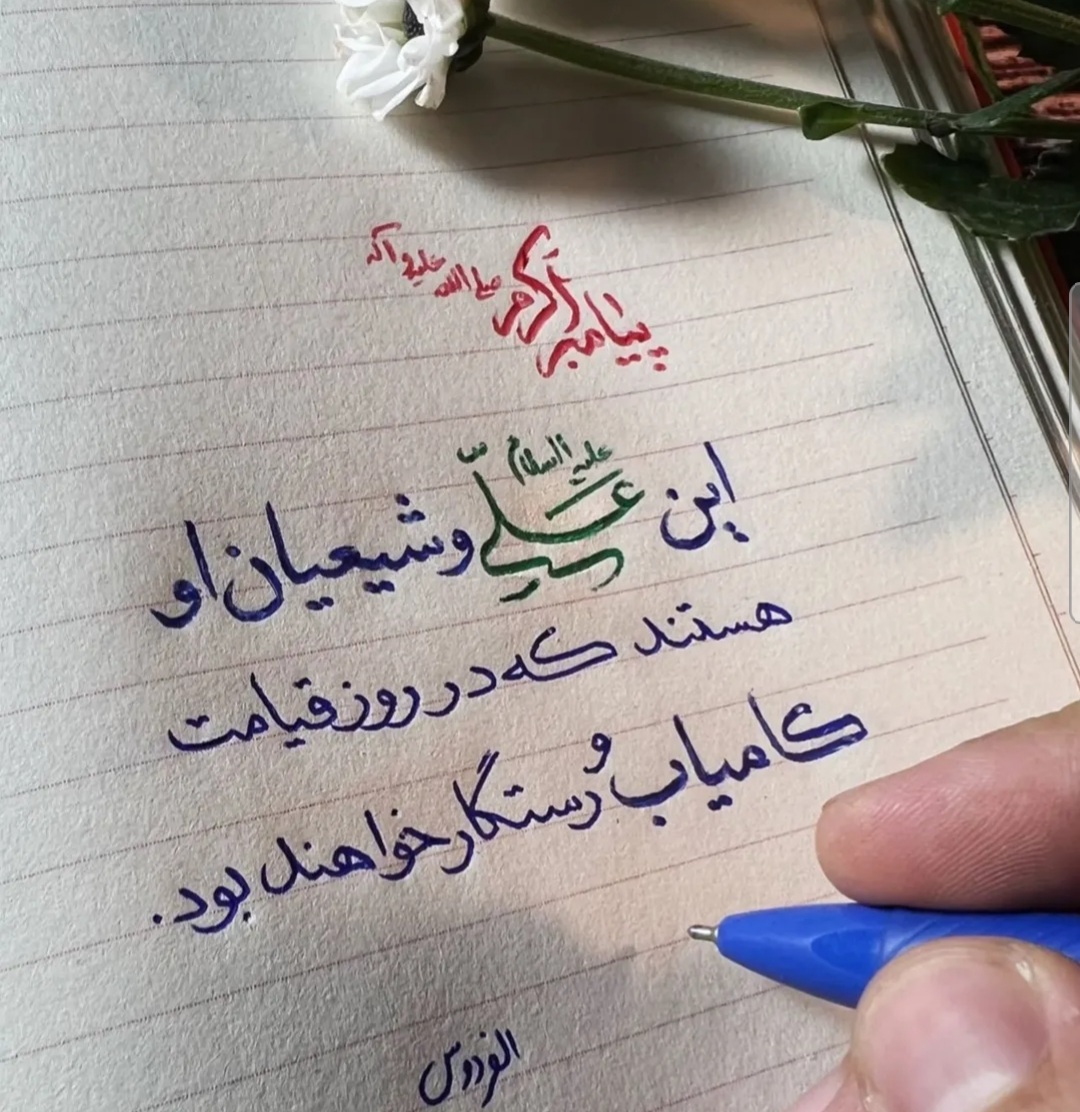 پیامبر اکرم صلی الله علیه و آله
این علی علیه السلام و شیعیان او
هستند که در روز قیامت
کامیاب و رستگار خواهند بود.
الفردوس